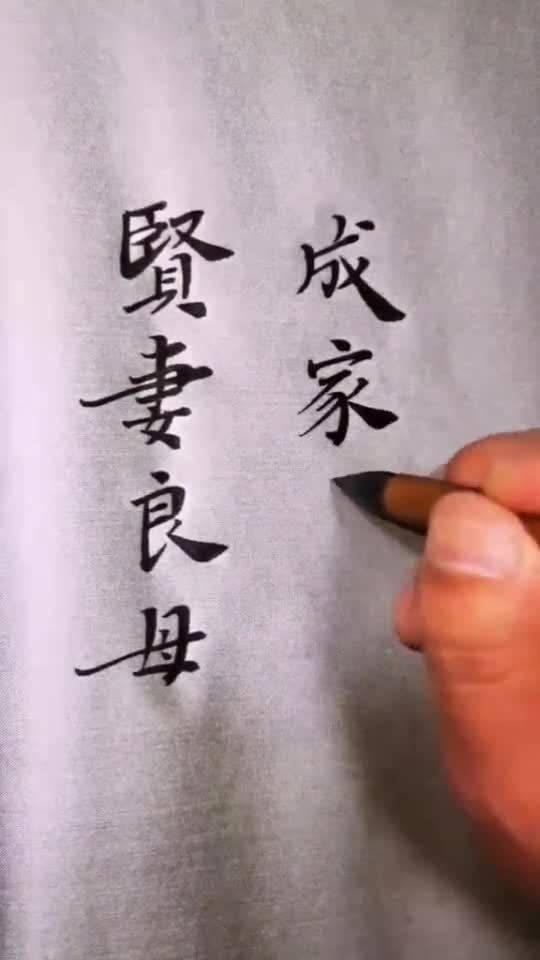 成家
賢妻良母